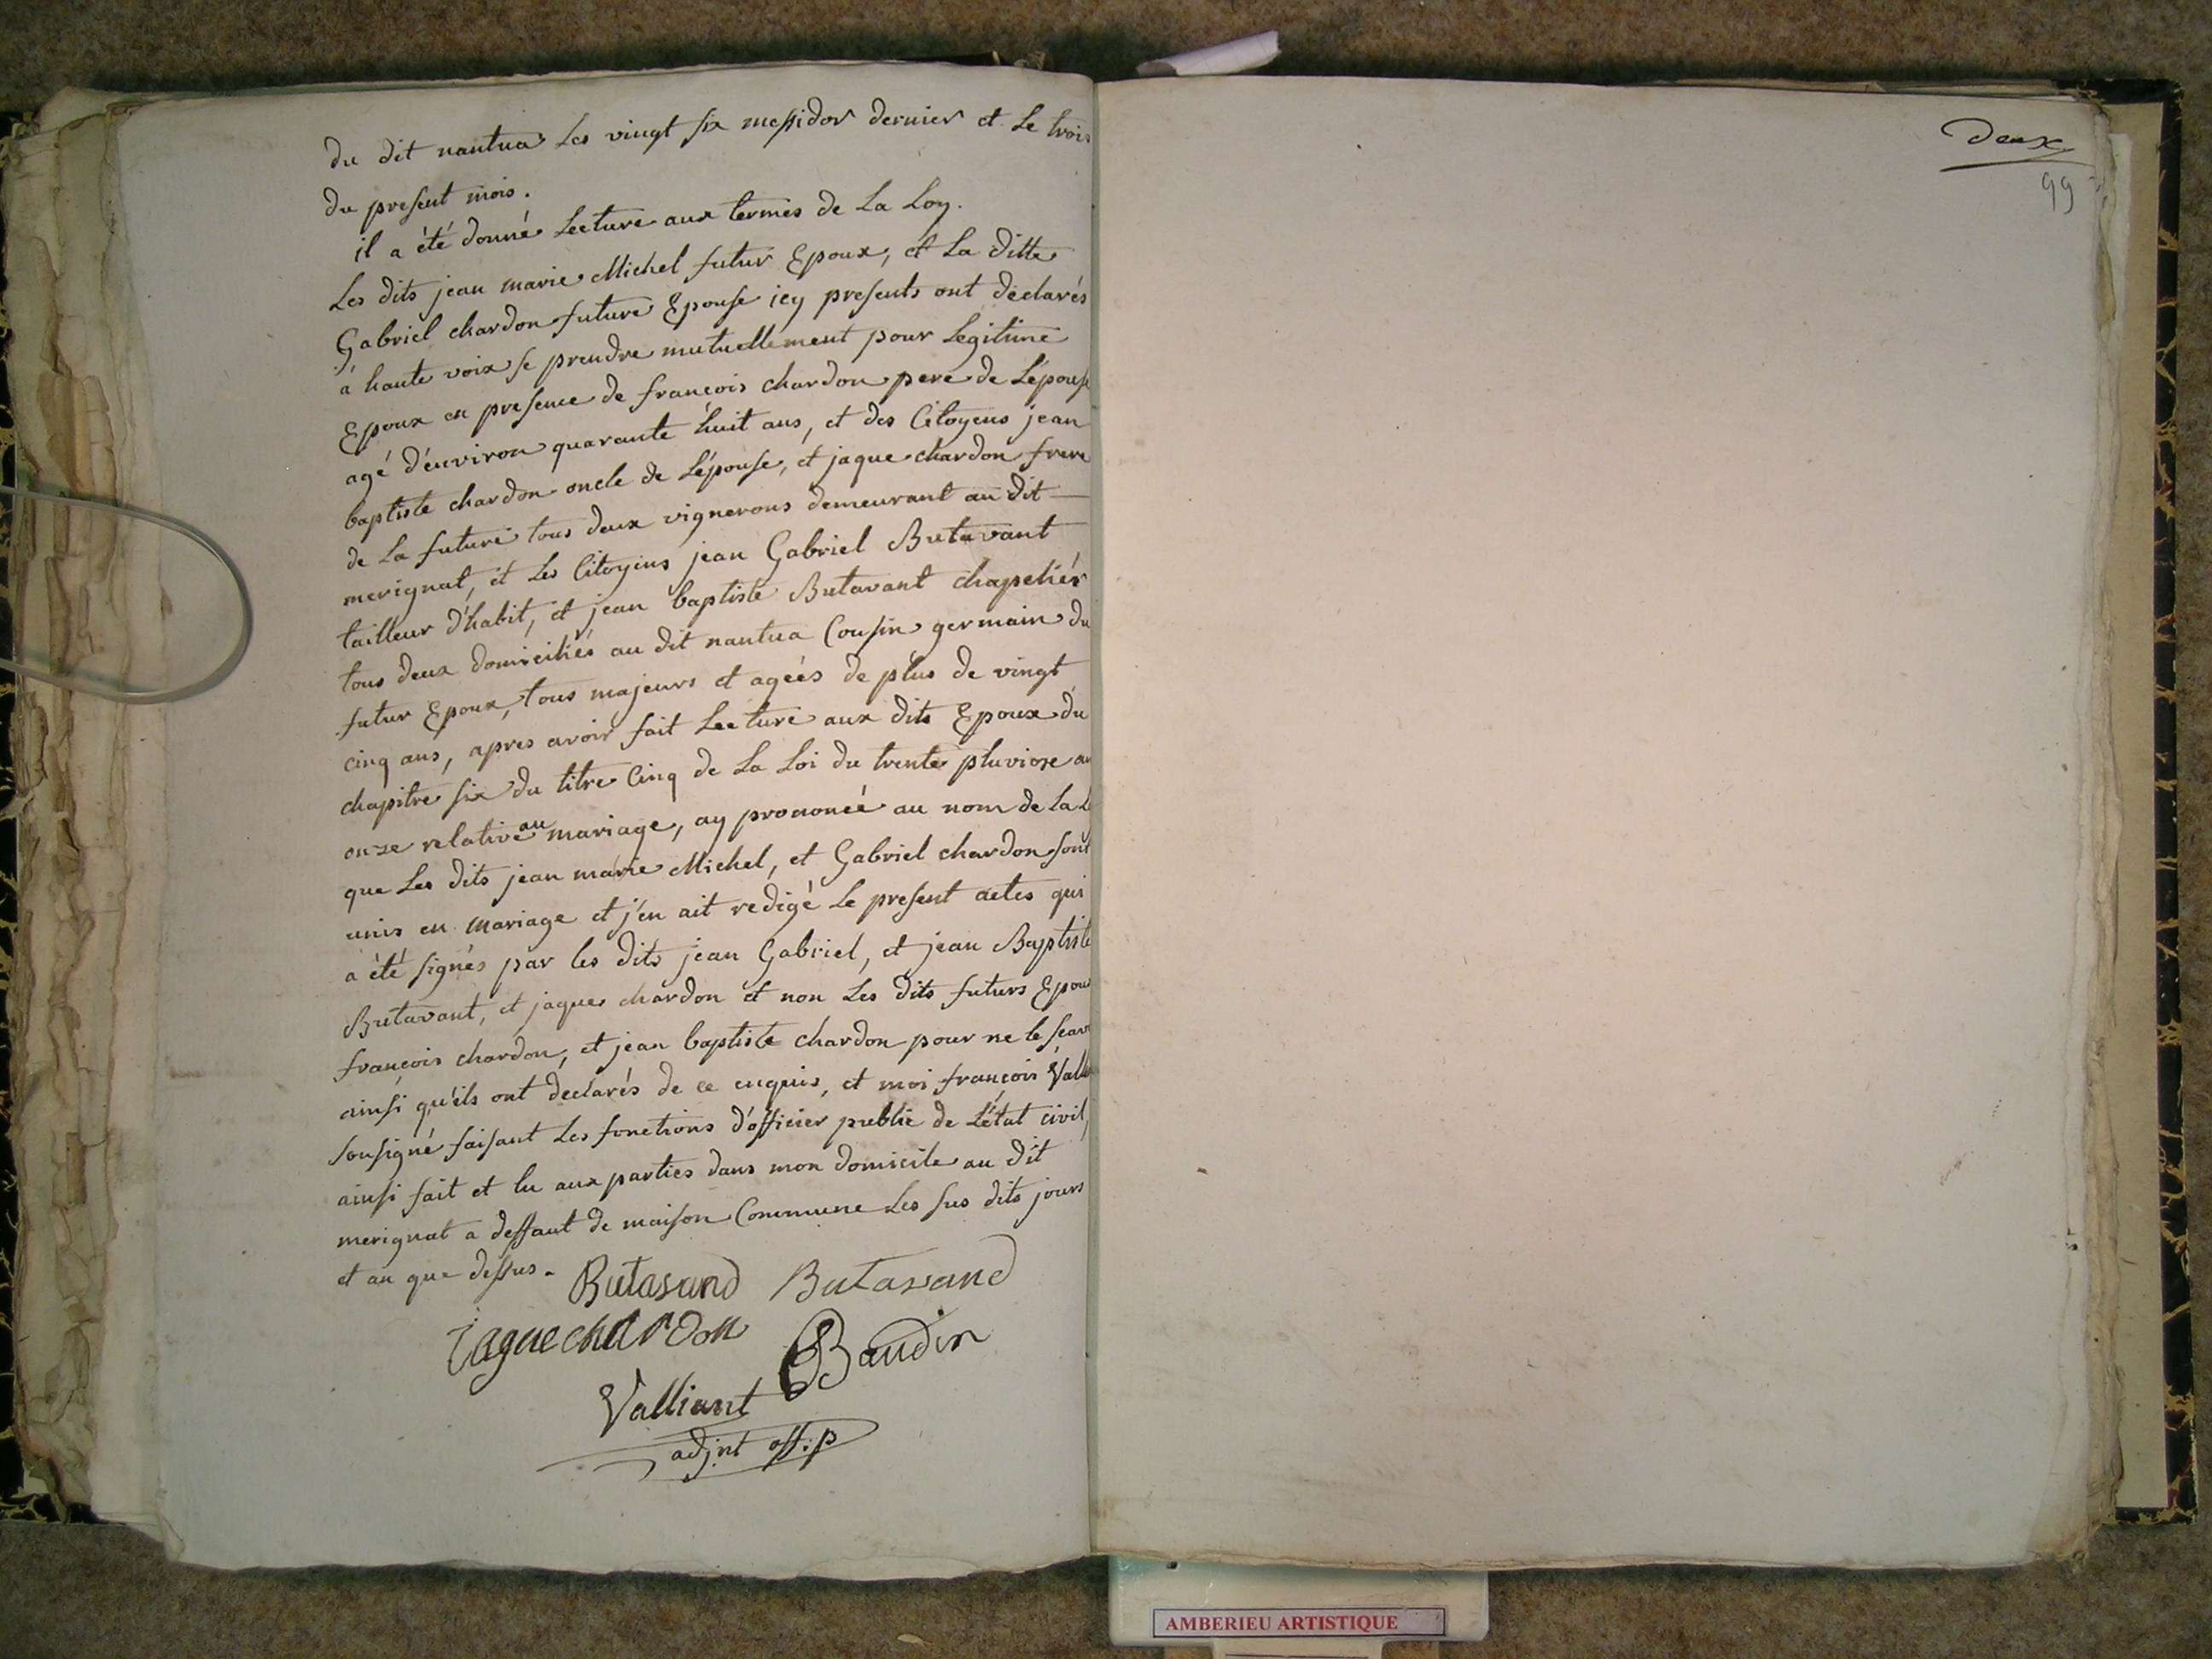 du dit nantua Les vingt six messidor dernier et Le trois
du present mois.
il a été donné Lecture aux termes de La Loy.
Les dits jean marie Michel futur Epoux, et La ditte
Gabriel chardon future Epouse icy presents ont déclarés
à haute voix se prendre mutuellement pour Legitime
Epoux en presence de françois chardon pere de L'épouse
agé d'environ quarante huit ans, et des Citoyens jean
baptiste chardon oncle de L'épouse, et jaque chardon frere
de La future tous deux vignerons demeurant au dit
merignat, et Les Citoyens jean Gabriel Butavant
tailleur d'habit, et jean baptiste Butavant chapeliér
tous deux domiciliés au dit nantua Cousin germain du
futur Epoux, tous majeurs et ageés de plus de vingt
cinq ans, apres avoir fait Lecture aux dits Epoux du
chapitre six du titre Cinq de La Loi du trente pluviose an
onze relative au mariage, ay prononcé au nom de La L
que Les dits jean marie Michel, et Gabriel chardon sont
unis en mariage et j'en ait redigé Le present actes qui
a été signés par les dits jean Gabriel, et jean Baptiste
Butavant, et jaques chardon et non Les dits futurs Epoux
françois chardon, et jean baptiste chardon pour ne le scav
ainsi qu'ils ont declarés de ce enquis, et moi françois Vall
sousigné faisant Les fonctions d'officier public de L'état civil,
ainsi fait et lu aux parties dans mon domicile au dit
merignat a deffaut de maison Commune Les sus dits jours
et an que dessus.
Butavand Butavand
jaque chardon
Baudin
Valliant
adjnt off. p
Deux
99
AMBERIEU ARTISTIQUE